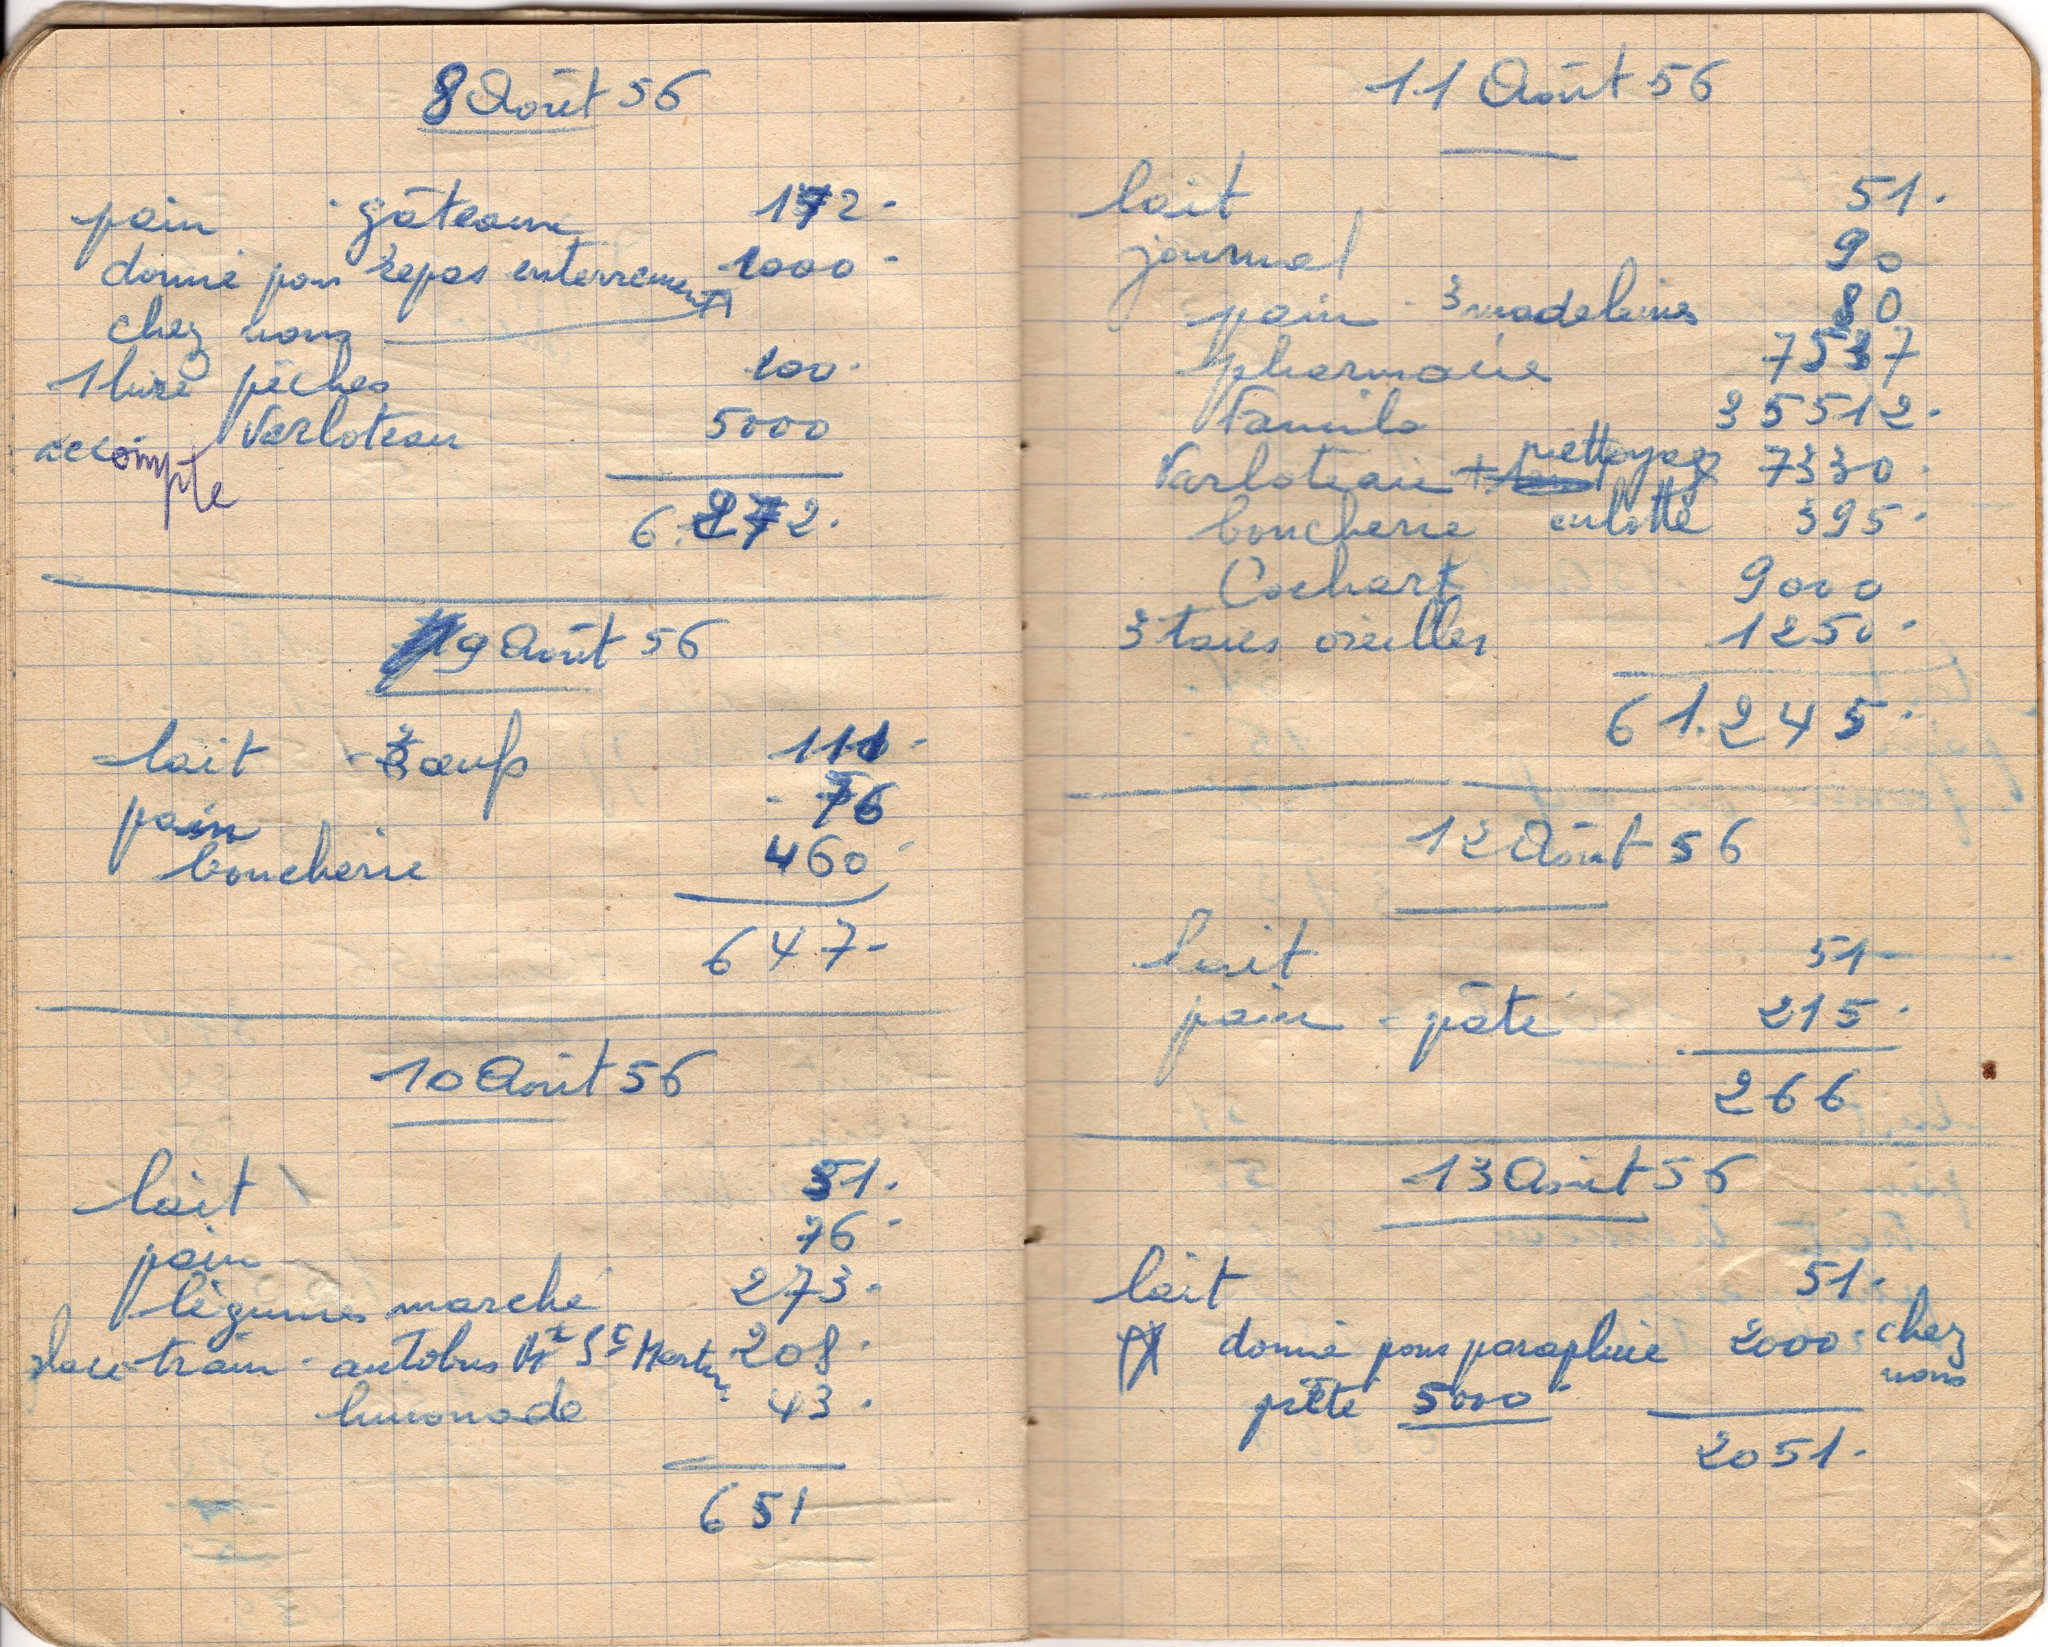 8 Août 56
pain - gâteaux 172.
donné pour repas enterrement 1000 -
chez nous
1 livre pêches 100.
accompte Varloteau 5000
6.272.
9 Août 56
lait - 3 œufs 111.
pain - 76
boucherie 460.
647-
10 Août 56
lait 51.
pain 76.
légumes marché 273.
place train - autobus Mt St Martin 208.
limonade 43.
651
11 Août 56
lait 51.
journal 90
pain - 3 madeleines 80
pharmacie 7537
35512.
nettoyage
Varloteau + 7330.
culotte
boucherie 395.
Cochart 9000
3 taies oreiller 1250.
61.245.
12 Août 56
lait 51-
pain - pâte 215.
266
13 Août 56
lait 51.
donné pour parapluie 2000 chez nous
prêté 5000
2051.